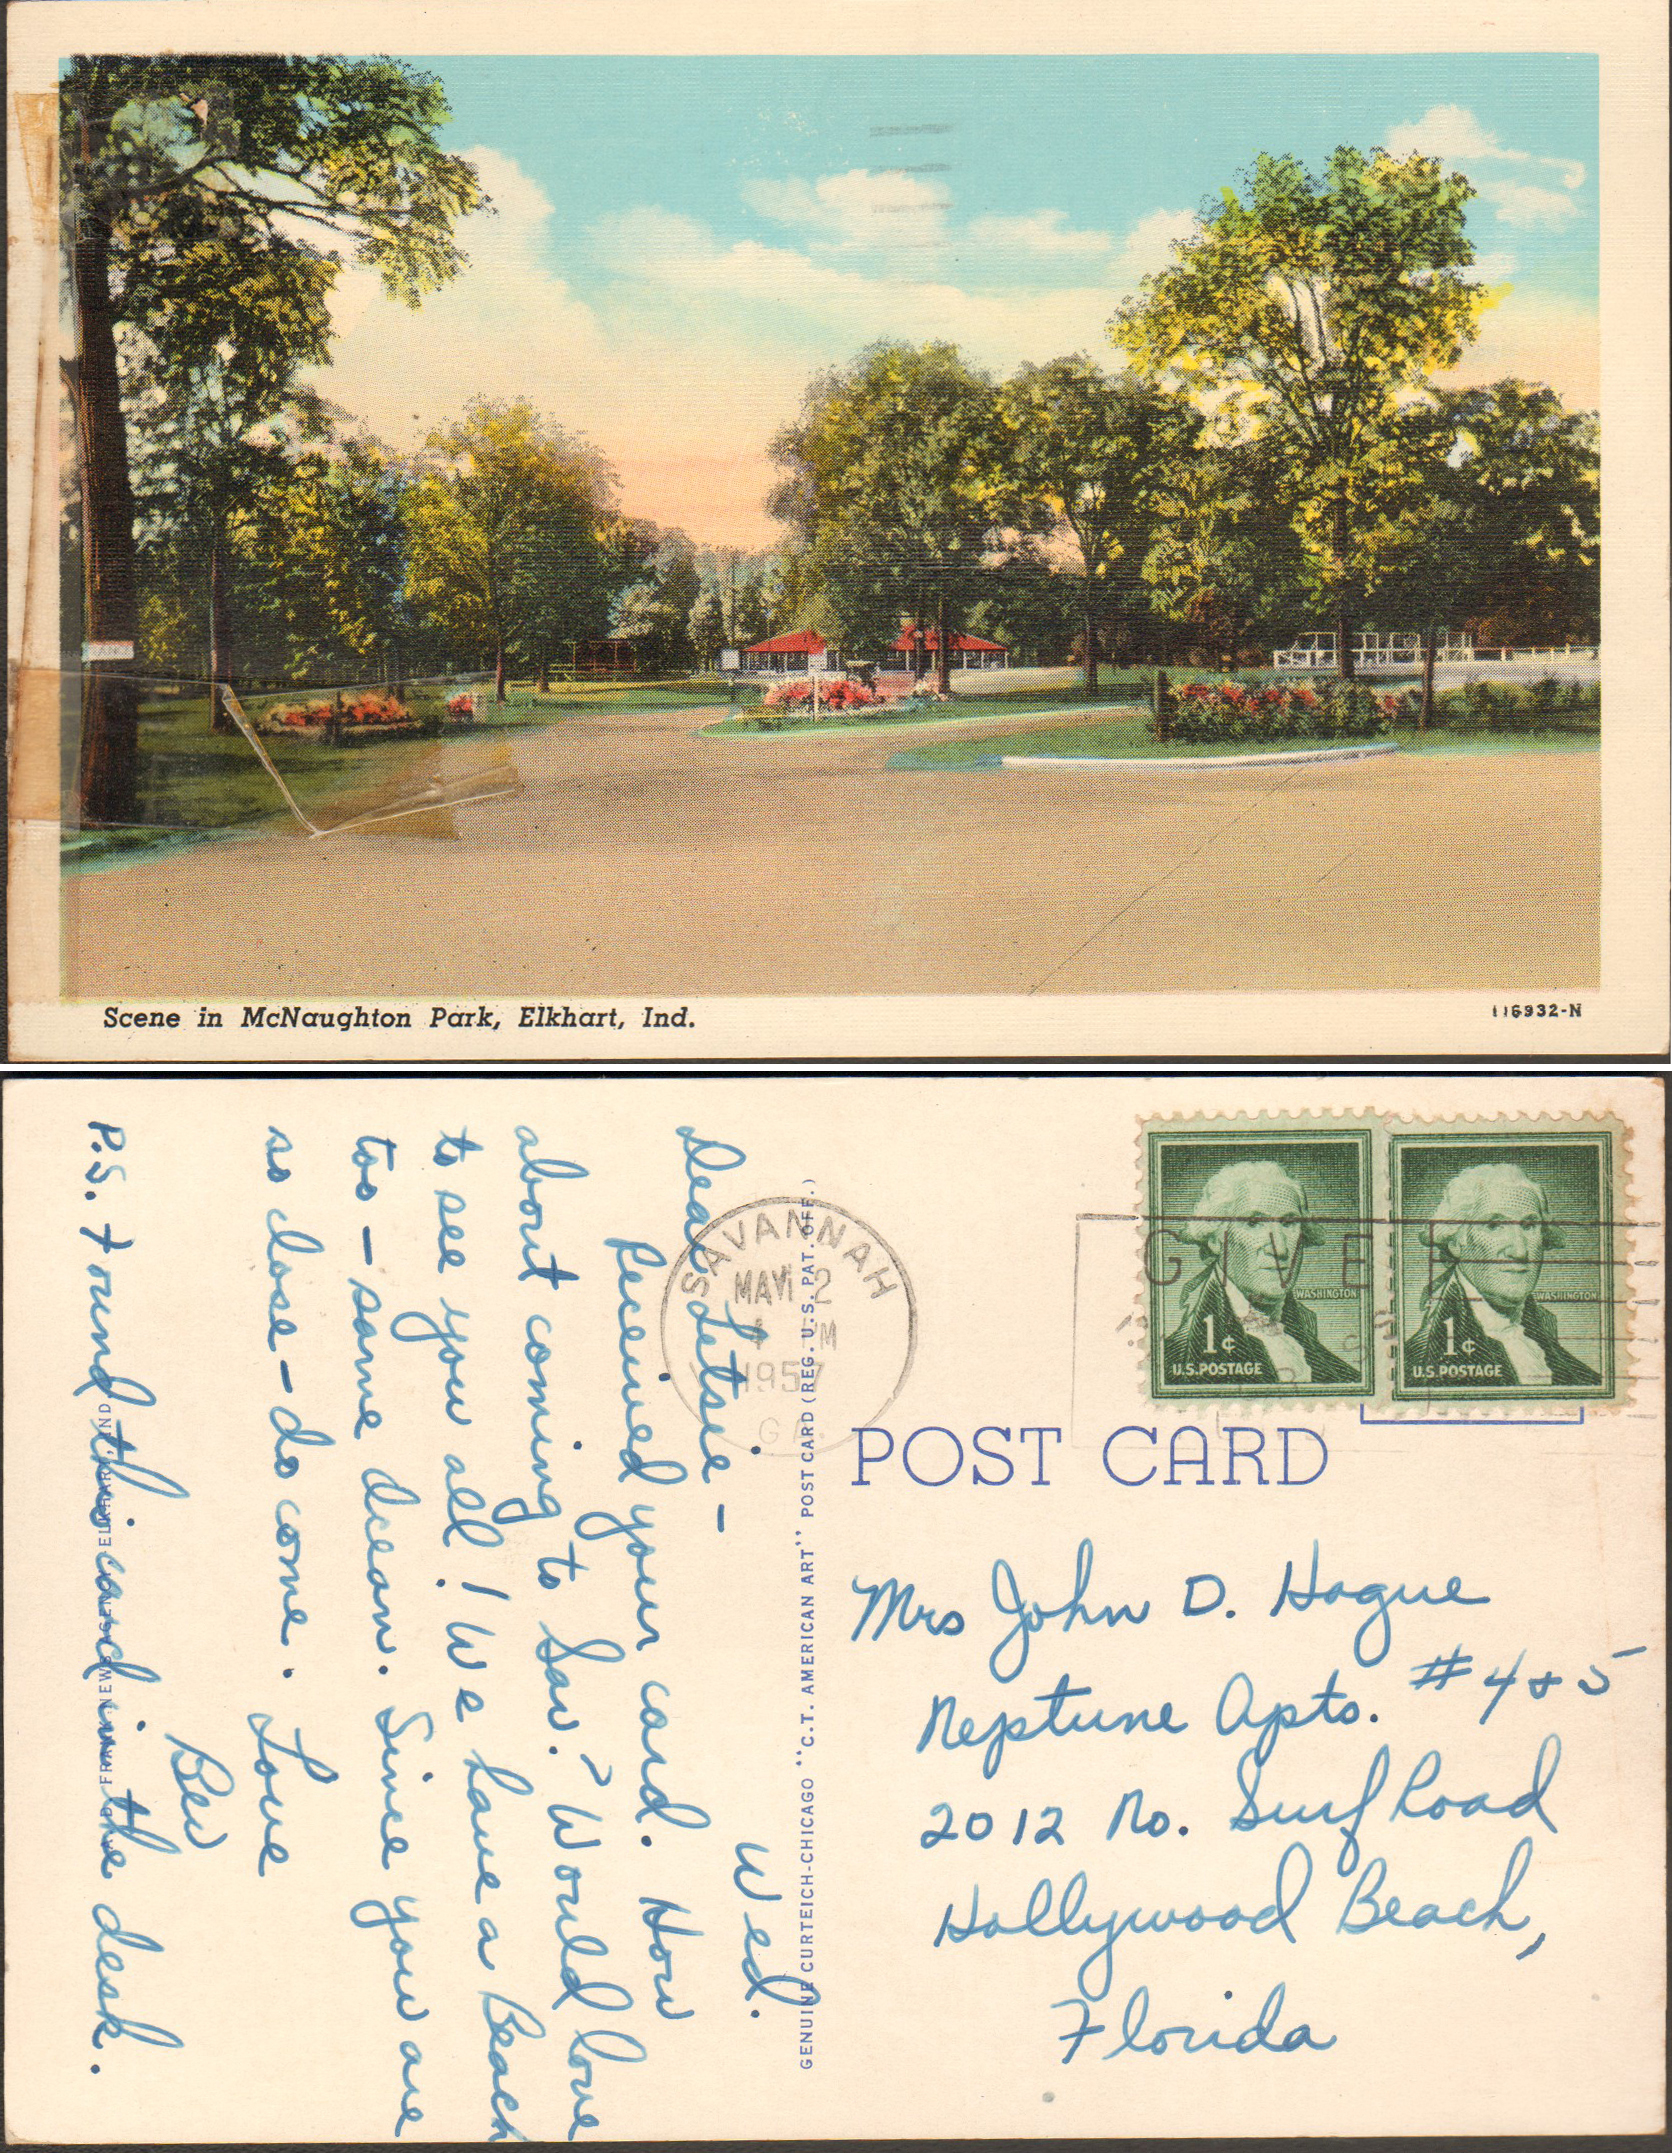 Scene in McNaughton Park, Elkhart, Ind.
116932-N
Wed.
Dear Letsie -
Received your card. How
about coming to Sav.? Would love
to see you all! We have a Beach
too - same Ocean. Since you are
so close - do come.
Love
Bew
P.S. Found this card in the desk.
GENUINE CURTEICH-CHICAGO "C.T. AMERICAN ART" POST CARD (REG. U.S. PAT. OFF.)
SAVANNAH
MAY 2
4 PM
1957
GA.
GIVE
WASHINGTON
1¢
U.S. POSTAGE
WASHINGTON
1¢
U.S. POSTAGE
POST CARD
Mrs John D. Hogue
Neptune Apts. #4 & 5
2012 No. Surf Road
Hollywood Beach,
Florida